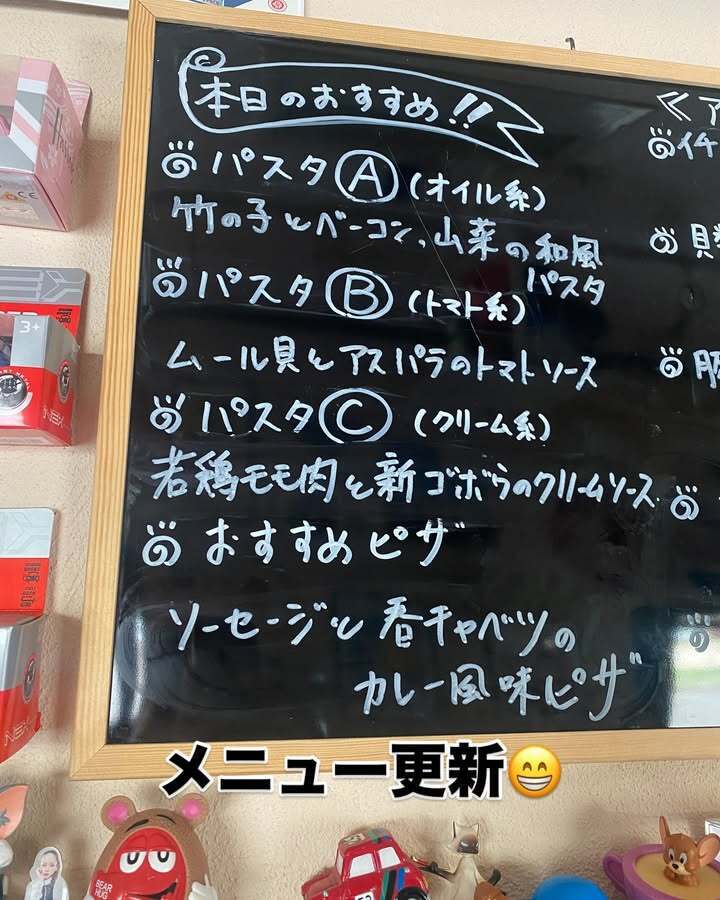 本日のおすすめ!!
パスタ Ⓐ (オイル系)
竹の子とベーコン、山菜の和風
パスタ
パスタ Ⓑ (トマト系)
ムール貝とアスパラのトマトソース
パスタ Ⓒ (クリーム系)
若鶏モモ肉と新ゴボウのクリームソース
おすすめピザ
ソーセージと春キャベツの
カレー風味ピザ
≪ア
イチ
貝
豚
メニュー更新😁
3+
BEAR
HUG